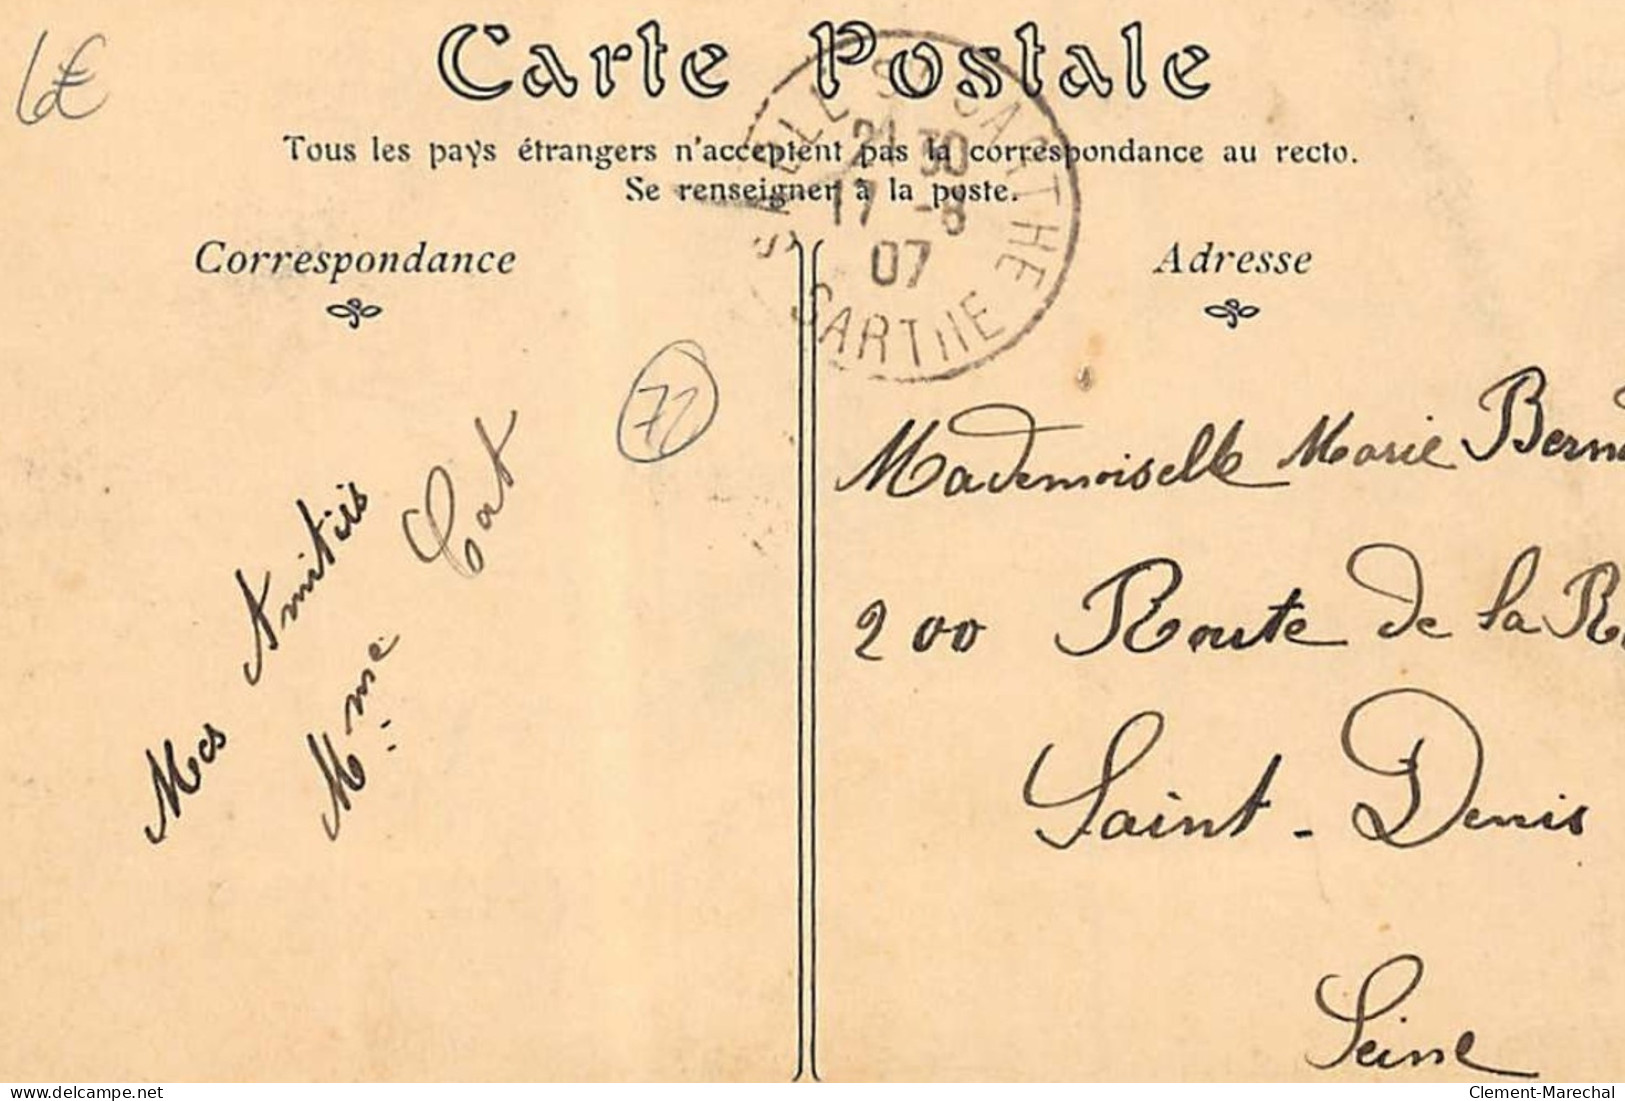 6€
Carte Postale
Tous les pays étrangers n'acceptent pas la correspondance au recto.
Se renseigner à la poste.
SABLE S. SARTHE
21 30
17 -8
07
SARTHE
Correspondance
Adresse
72
Mes Amitiés
Mme Cat
Mademoiselle Marie
200 Route de la
Saint-Denis
Seine
delcampe.net
Clement-Marechal